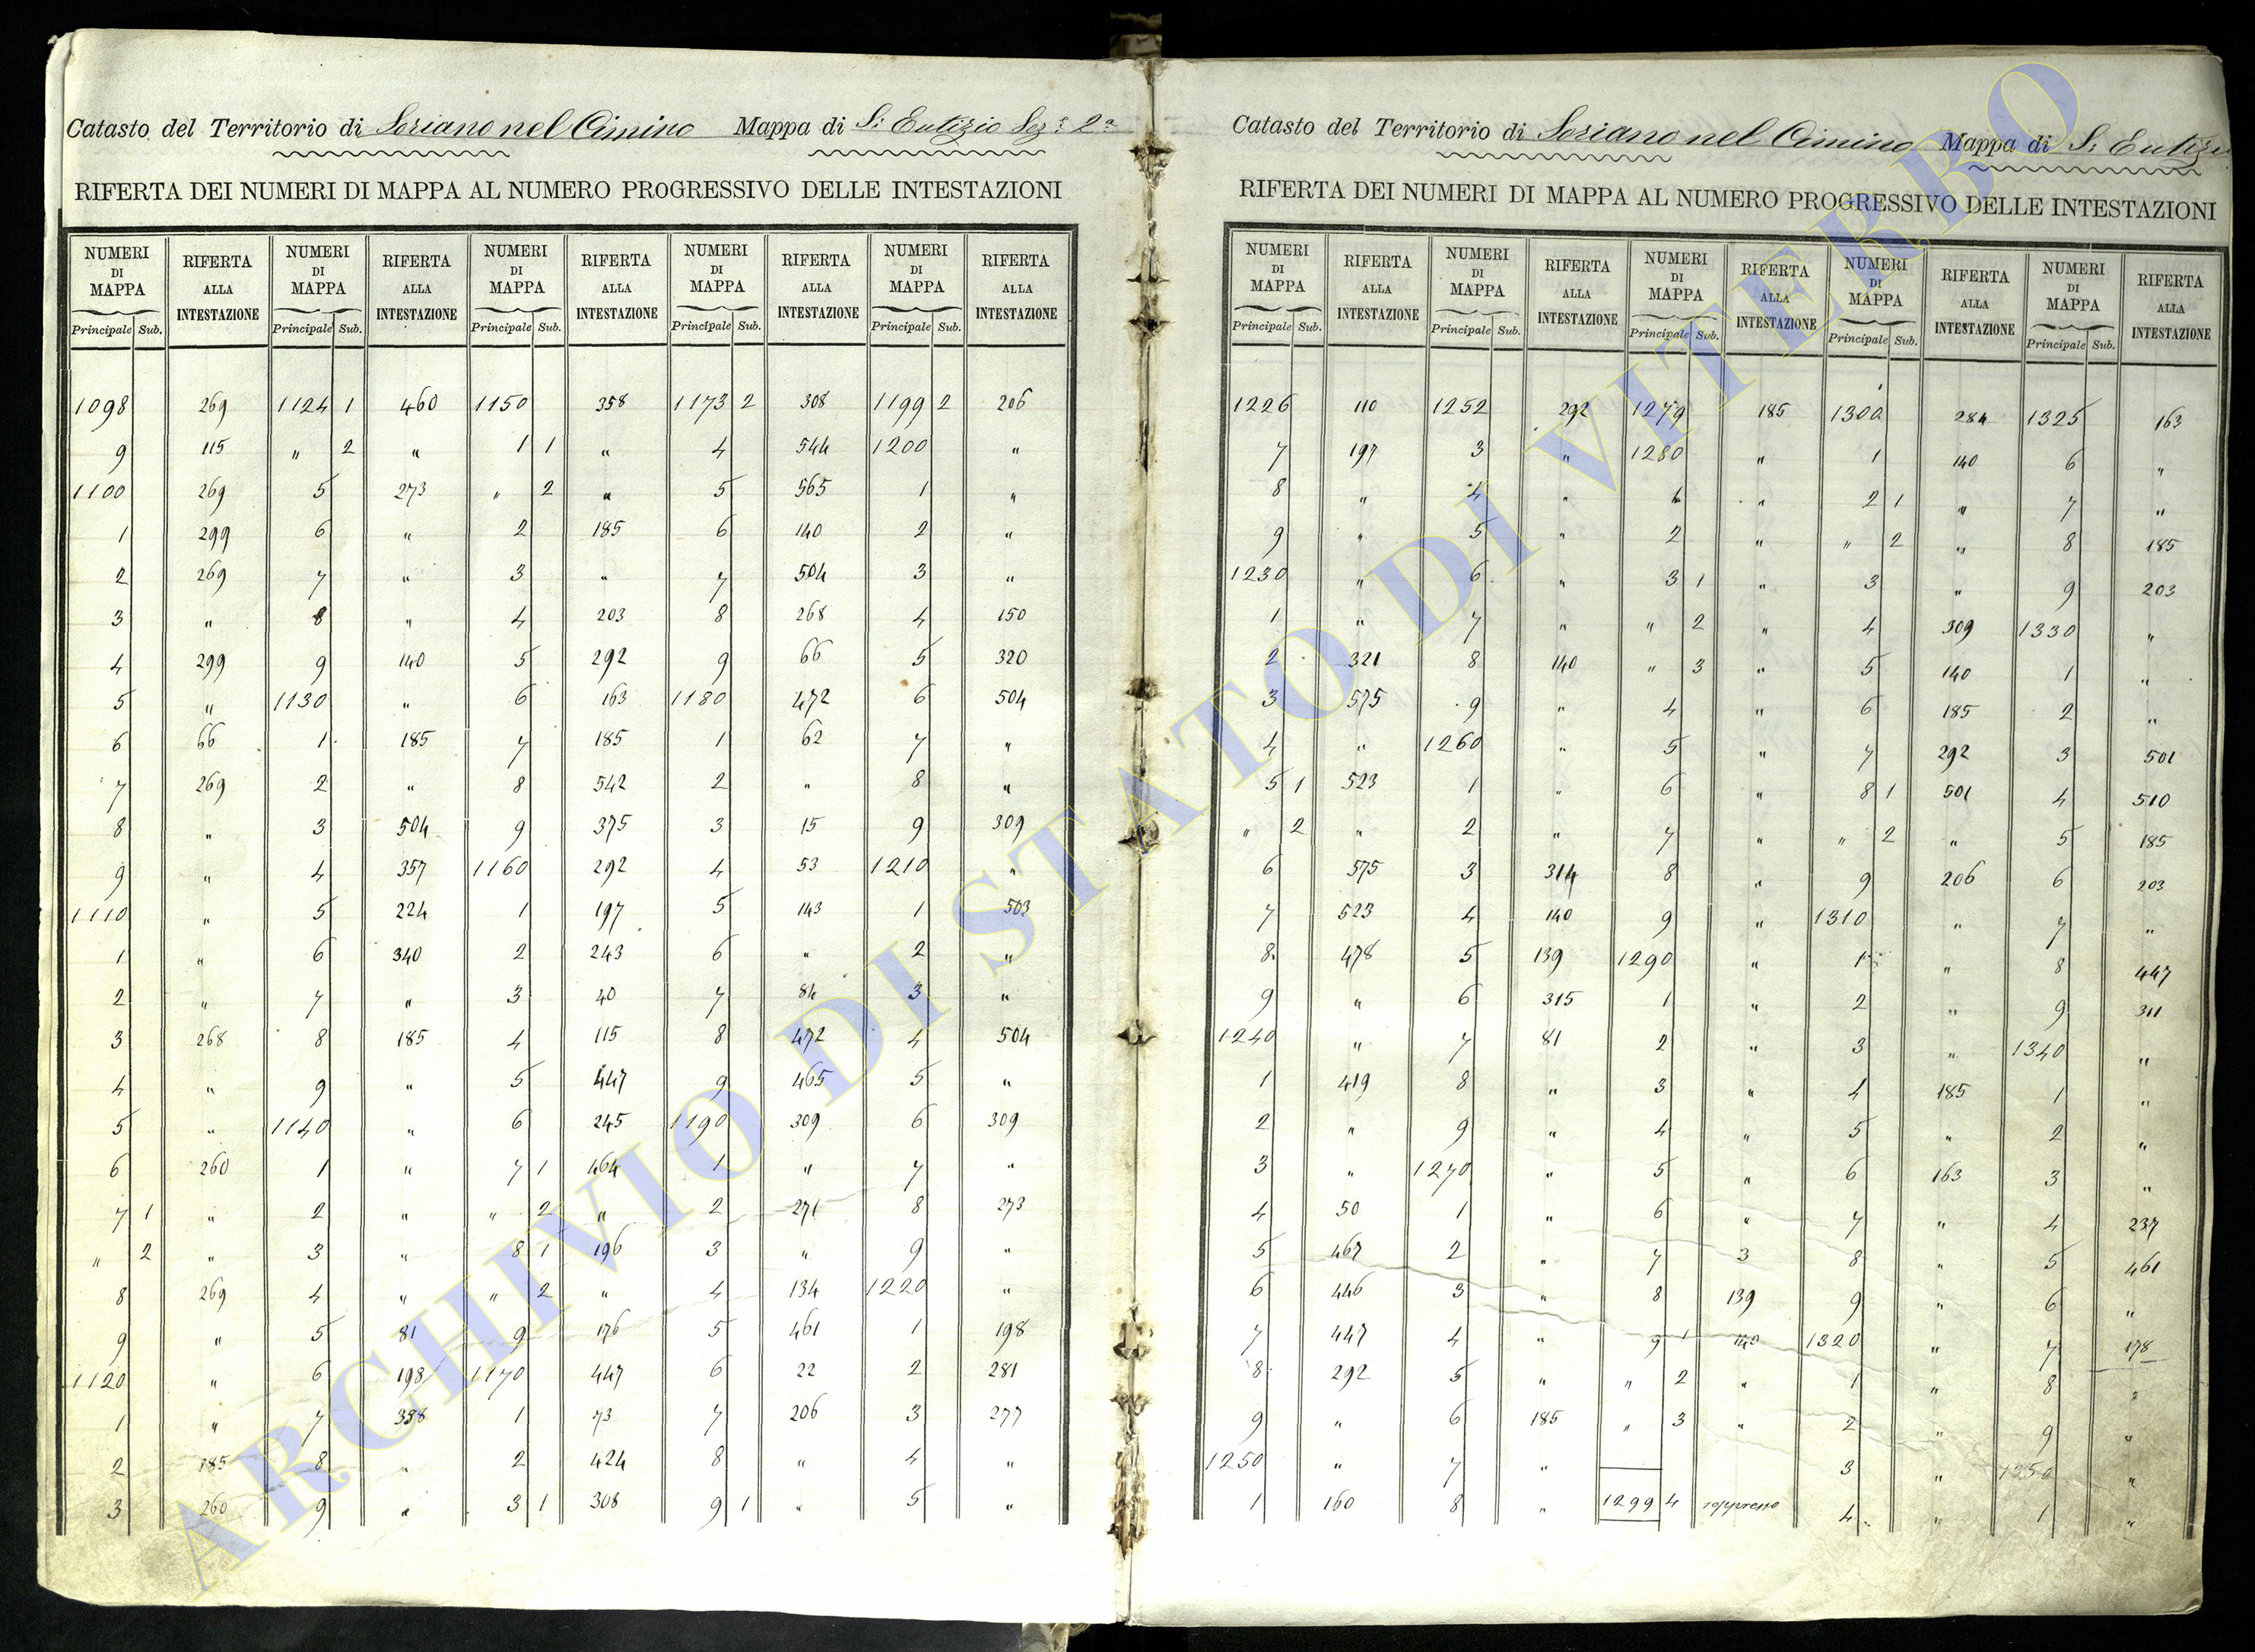 Catasto del Territorio di Soriano nel Cimino Mappa di S. Eutizio Sez.e 2a
RIFERTA DEI NUMERI DI MAPPA AL NUMERO PROGRESSIVO DELLE INTESTAZIONI
NUMERI DI MAPPA RIFERTA ALLA INTESTAZIONE NUMERI DI MAPPA RIFERTA ALLA INTESTAZIONE NUMERI DI MAPPA RIFERTA ALLA INTESTAZIONE NUMERI DI MAPPA RIFERTA ALLA INTESTAZIONE NUMERI DI MAPPA RIFERTA ALLA INTESTAZIONE
Principale Sub. Principale Sub. Principale Sub. Principale Sub. Principale Sub.
1098 269 1124 1 460 1150 358 1173 2 308 1199 2 206
9 115 " 2 " 1 1 " 4 544 1200 "
1100 269 5 273 " 2 " 5 565 1 "
1 299 6 " 2 185 6 140 2 "
2 269 7 " 3 " 7 504 3 "
3 " 8 " 4 203 8 268 4 150
4 299 9 140 5 292 9 66 5 320
5 " 1130 " 6 163 1180 472 6 504
6 66 1 185 7 185 1 62 7 "
7 269 2 " 8 542 2 " 8 "
8 " 3 504 9 375 3 15 9 309
9 " 4 357 1160 292 4 53 1210 "
1110 " 5 224 1 197 5 143 1 503
1 " 6 340 2 243 6 " 2 "
2 " 7 " 3 40 7 84 3 "
3 268 8 185 4 115 8 472 4 504
4 " 9 " 5 447 9 465 5 "
5 " 1140 " 6 245 1190 309 6 309
6 260 1 " 7 1 464 1 " 7 "
7 1 " 2 " " 2 " 2 271 8 273
" 2 " 3 " 8 1 196 3 " 9 "
8 269 4 " " 2 " 4 134 1220 "
9 " 5 81 9 176 5 461 1 198
1120 " 6 198 1170 447 6 22 2 281
1 " 7 338 1 73 7 206 3 277
2 185 8 " 2 424 8 " 4 "
3 260 9 " 3 1 308 9 1 " 5 "
Catasto del Territorio di Soriano nel Cimino Mappa di S. Eutizio
RIFERTA DEI NUMERI DI MAPPA AL NUMERO PROGRESSIVO DELLE INTESTAZIONI
NUMERI DI MAPPA RIFERTA ALLA INTESTAZIONE NUMERI DI MAPPA RIFERTA ALLA INTESTAZIONE NUMERI DI MAPPA RIFERTA ALLA INTESTAZIONE NUMERI DI MAPPA RIFERTA ALLA INTESTAZIONE NUMERI DI MAPPA RIFERTA ALLA INTESTAZIONE
Principale Sub. Principale Sub. Principale Sub. Principale Sub. Principale Sub.
1226 110 1252 292 1279 185 1300 284 1325 163
7 197 3 " 1280 " 1 140 6 "
8 " 4 " 1 " 2 1 " 7 "
9 " 5 " 2 " " 2 " 8 185
1230 " 6 " 3 1 " 3 " 9 203
1 " 7 " " 2 " 4 309 1330 "
2 321 8 140 " 3 " 5 140 1 "
3 575 9 " 4 " 6 185 2 "
4 " 1260 " 5 " 7 292 3 501
5 1 523 1 " 6 " 8 1 501 4 510
" 2 " 2 " 7 " " 2 " 5 185
6 575 3 314 8 " 9 206 6 203
7 523 4 140 9 " 1310 " 7 "
8 478 5 139 1290 " 1 " 8 447
9 " 6 315 1 " 2 " 9 311
1240 " 7 81 2 " 3 " 1340 "
1 419 8 " 3 " 4 185 1 "
2 " 9 " 4 " 5 " 2 "
3 " 1270 " 5 " 6 163 3 "
4 50 1 " 6 " 7 " 4 237
5 467 2 " 7 3 8 " 5 461
6 446 3 " 8 139 9 " 6 "
7 447 4 " 9 1 140 1320 " 7 178
8 292 5 " " 2 " 1 " 8 "
9 " 6 185 " 3 " 2 " 9 "
1250 " 7 " 3 " 1350 "
1 160 8 " 1299 4 soppresso 4 " 1 "
ARCHIVIO DI STATO DI VITERBO